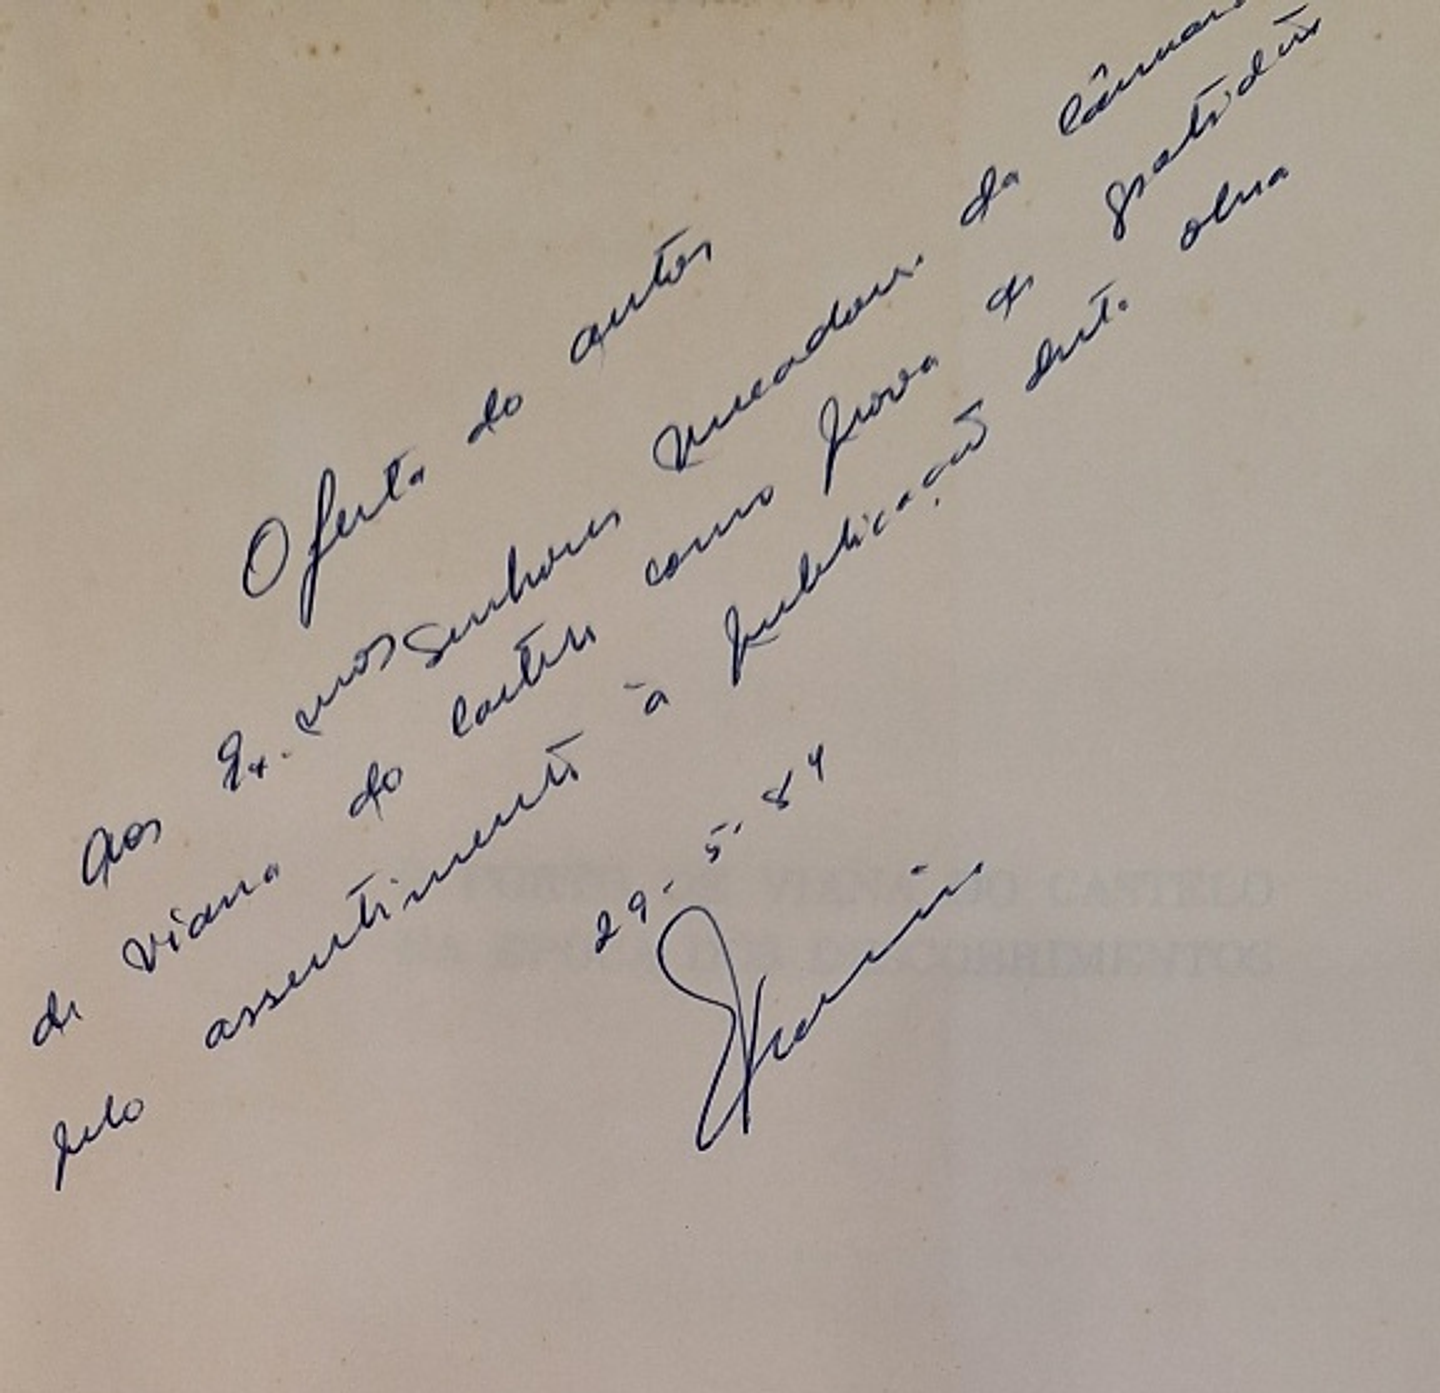 Oferta do autor
Aos Ex.mos Senhores Vereadores da Câmara
de Viana do Castelo como prova de gratidão
pelo assentimento à publicação desta obra
29-5-84
PORTO DE VIANA DO CASTELO
NA ÉPOCA DOS DESCOBRIMENTOS